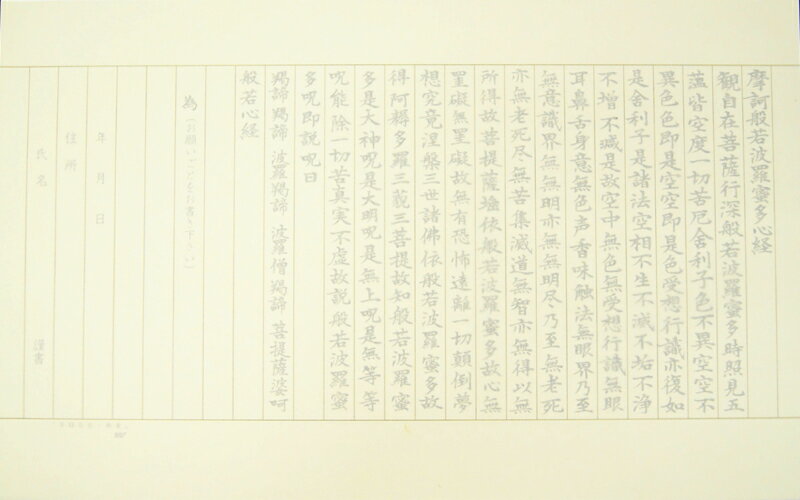 摩訶般若波羅蜜多心経
観自在菩薩行深般若波羅蜜多時照見五
蘊皆空度一切苦厄舎利子色不異空空不
異色色即是空空即是色受想行識亦復如
是舎利子是諸法空相不生不滅不垢不浄
不増不減是故空中無色無受想行識無眼
耳鼻舌身意無色声香味触法無眼界乃至
無意識界無無明亦無無明尽乃至無老死
亦無老死尽無苦集滅道無智亦無得以無
所得故菩提薩埵依般若波羅蜜多故心無
罣礙無罣礙故無有恐怖遠離一切顛倒夢
想究竟涅槃三世諸佛依般若波羅蜜多故
得阿耨多羅三藐三菩提故知般若波羅蜜
多是大神呪是大明呪是無上呪是無等等
呪能除一切苦真実不虚故説般若波羅蜜
多呪即説呪曰
羯諦 羯諦 波羅羯諦 波羅僧羯諦 菩提薩婆訶
般若心経
為(お願いごとをお書き下さい)
年 月 日
住所
氏名 謹書